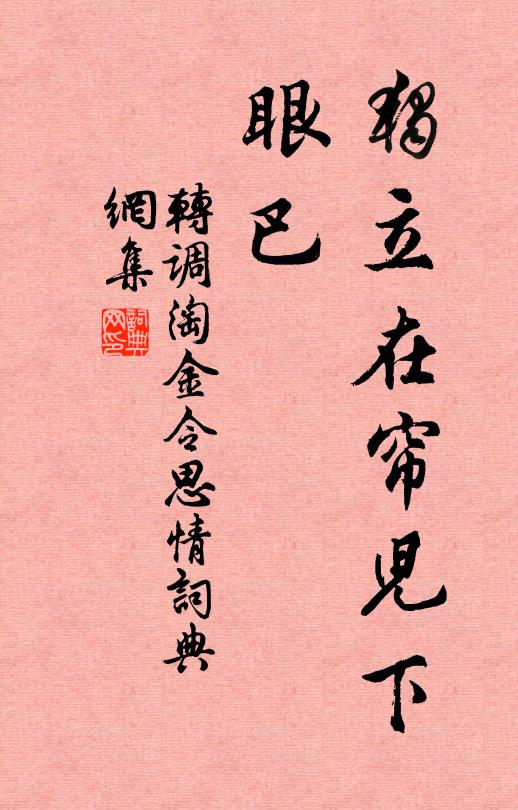 獨立在帘兒下
眼巴
轉调淘金令思情詞典
網集
詞典网印